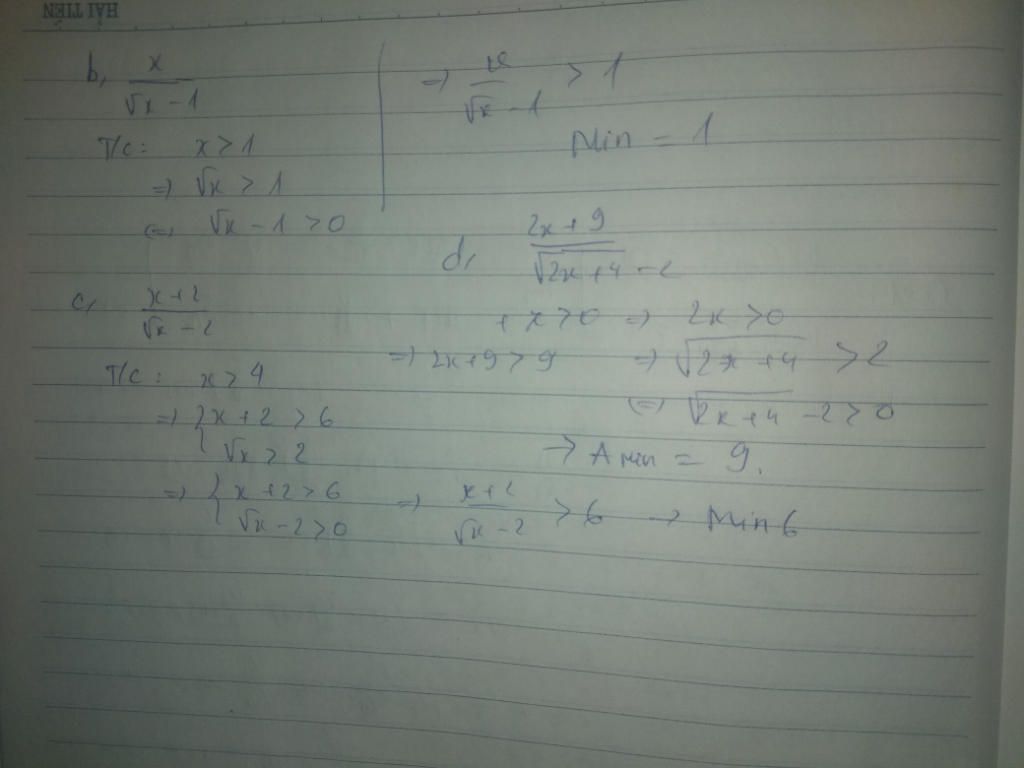 HẢI TIẾN
b, x/(√x - 1)
T/c: x > 1
=> √x > 1
<=> √x - 1 > 0
=> x/(√x - 1) > 1
Min = 1
c, (x+2)/(√x - 2)
T/c: x > 4
=> { x + 2 > 6
√x > 2
=> { x + 2 > 6
√x - 2 > 0
=> (x+2)/(√x - 2) > 6 -> Min 6
d, (2x + 9)/(√(2x+4) - 2)
+ x > 0 => 2x > 0
=> 2x+9 > 9 => √(2x+4) > 2
<=> √(2x+4) - 2 > 0
-> A min = 9.